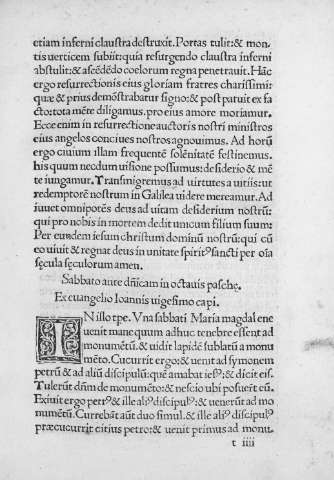 etiam inferni claustra destruxit. Portas tulit: & mon,
tis uerticem subiit: quia resurgendo claustra inferni
abstulit: & ascēdēdo coelorum regna penetrauit. Hāc
ergo resurrectionis eius gloriam fratres charissimi:
quæ & prius demōstrabatur signo: & post patuit ex fa
cto: tota mēte diligamus. pro eius amore moriamur.
Ecce enim in resurrectione auctoris nostri ministros
eius angelos conciues nostros agnouimus. Ad horū
ergo ciuium illam frequentē solēnitatē festinemus.
his quum necdum uisione possumus: desiderio & mē
te iungamur. Transmigremus ad uirtutes a uitiis: ut
redemptorē nostrum in Galilea uidere mereamur. Ad
iuuet omnipotēs deus ad uitam desiderium nostrū:
qui pro nobis in mortem dedit unicum filium suum:
Per eundem iesum christum dominū nostrū: qui cū
eo uiuit & regnat deus in unitate spiritꝰ sancti per oīa
sęcula sęculorum amen.
Sabbato ante dn̄icam in octauis paschę.
Ex euangelio Ioannis uigesimo capi.
IN illo tp̄e. Vna sabbati Maria magdalene
uenit mane quum adhuc tenebre essent ad
monumētū. & uidit lapidē sublatū a monu
mēto. Cucurrit ergo: & uenit ad symonem
petrū & ad aliū discipulū: quē amabat iesꝰ: & dicit eis.
Tulerūt dn̄m de monumēto: & nescio ubi posuerūt eū.
Exiuit ergo petrꝰ & ille aliꝰ discipulꝰ: & uenerūt ad mo
numētū. Currebāt aūt duo simul. & ille aliꝰ discipulꝰ
præcucurrit citius petro: & uenit primus ad monu,
t iiii